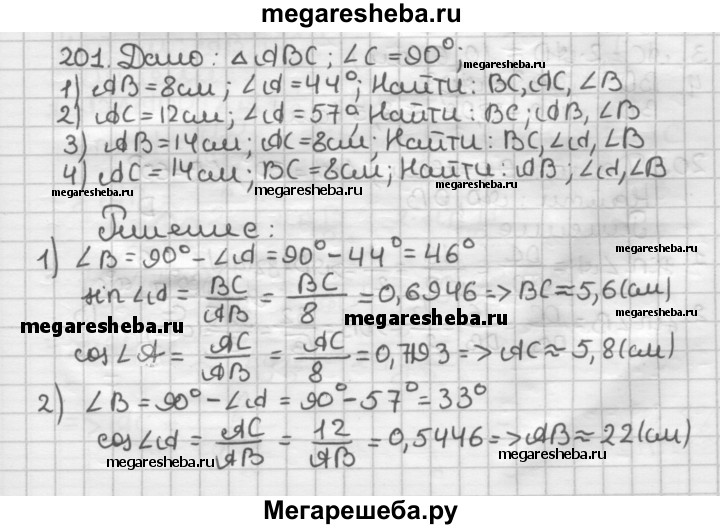 megaresheba.ru
201. Дано: △ABC; ∠C=90°;
1) AB=8см; ∠A=44°; Найти: BC, AC, ∠B
2) AC=12см; ∠A=57° Найти: BC; AB, ∠B
3) AB=14см; AC=8см; Найти: BC, ∠A, ∠B
4) AC=14см; BC=8см; Найти: AB; ∠A, ∠B
megaresheba.ru megaresheba.ru megaresheba.ru
Решение:
1) ∠B=90°-∠A=90°-44°=46°
sin∠A = BC/AB = BC/8 = 0,6946 => BC≈5,6(см)
megaresheba.ru megaresheba.ru
cos∠A = AC/AB = AC/8 = 0,7193 => AC≈5,8(см)
2) ∠B=90°-∠A=90°-57°=33°
cos∠A = AC/AB = 12/AB = 0,5446 => AB≈22(см)
megaresheba.ru megaresheba.ru megaresheba.ru
Мегарешеба.ру